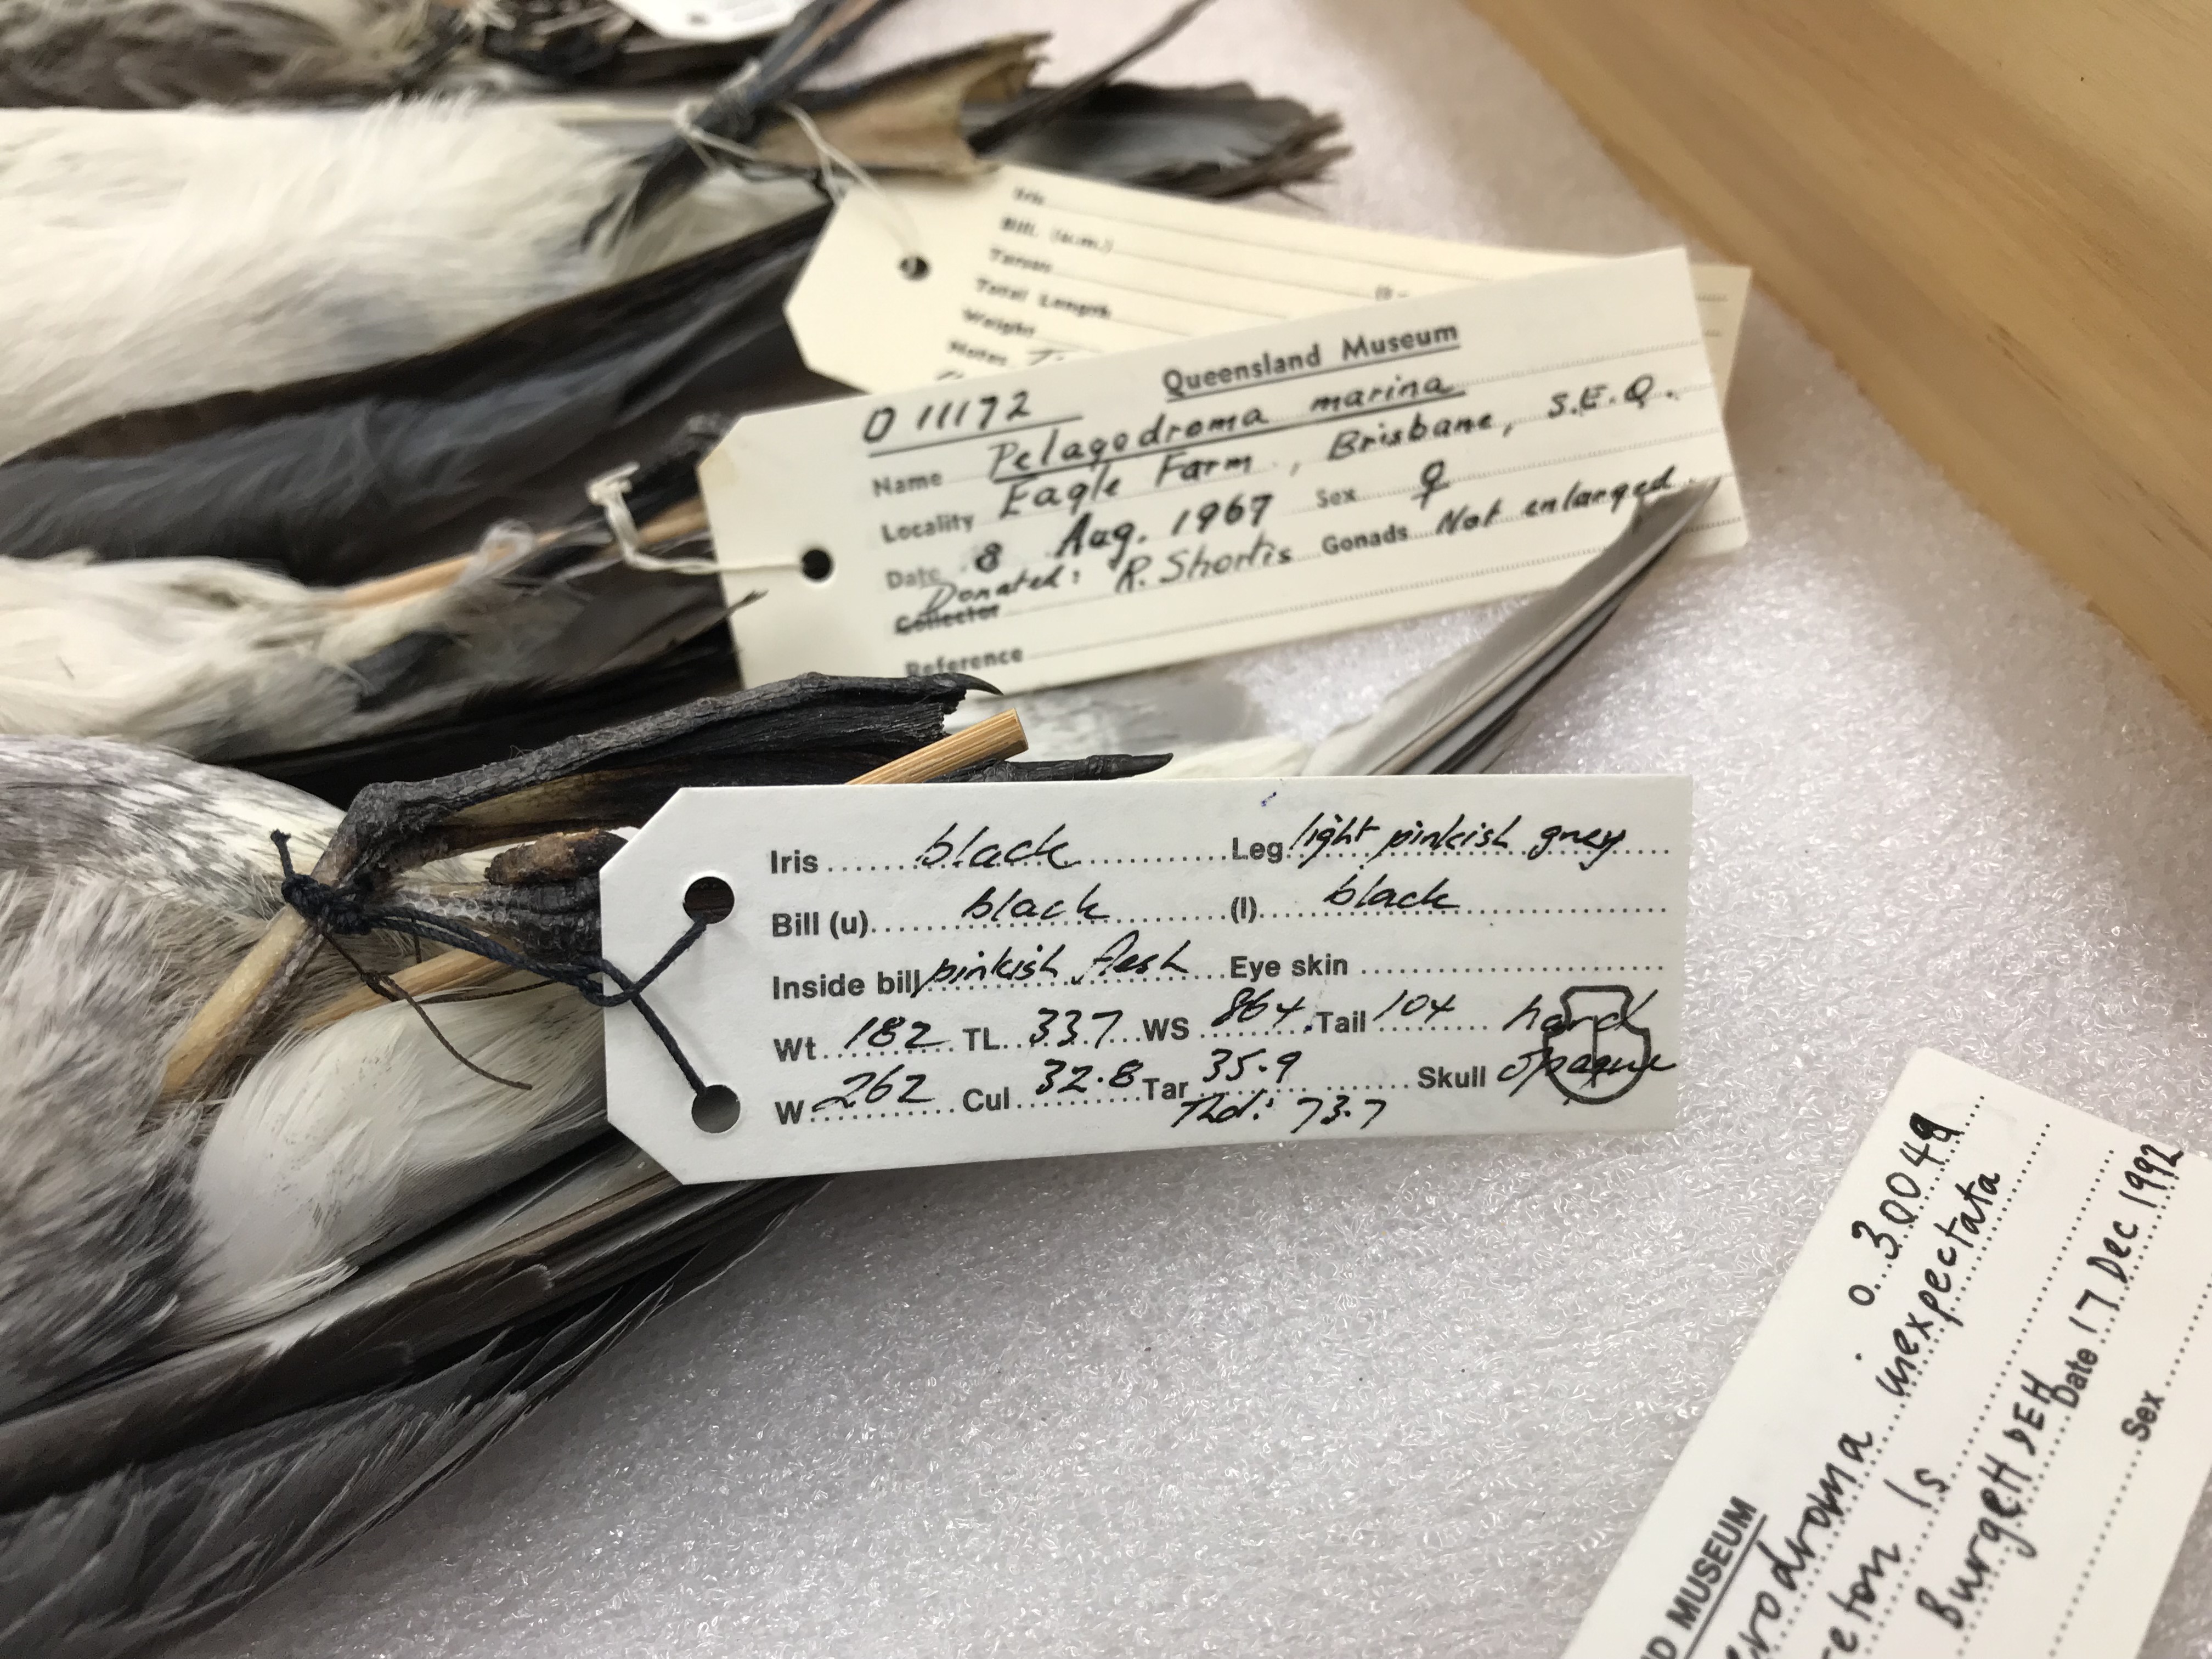 Iris
Bill. (s.m.)
Tarsus
Total Length
Weight
Notes
Queensland Museum
O 11172
Name Pelagodroma marina
Locality Eagle Farm, Brisbane, S.E.Q.
Date 8 Aug. 1967 Sex ♀
Donated: R. Shortis Gonads Not enlarged
Collector
Reference
Iris black Leg light pinkish grey
Bill (u) black (l) black
Inside bill pinkish flesh Eye skin
Wt 182 TL 337 WS 864 Tail 104 hard
W 262 Cul 32.8 Tar 35.9 Skull opaque
Hd: 73.7
ND MUSEUM O. 30049
erodroma inexpectata
reton Is
Burgett DEH Date 17 Dec 1992
Sex